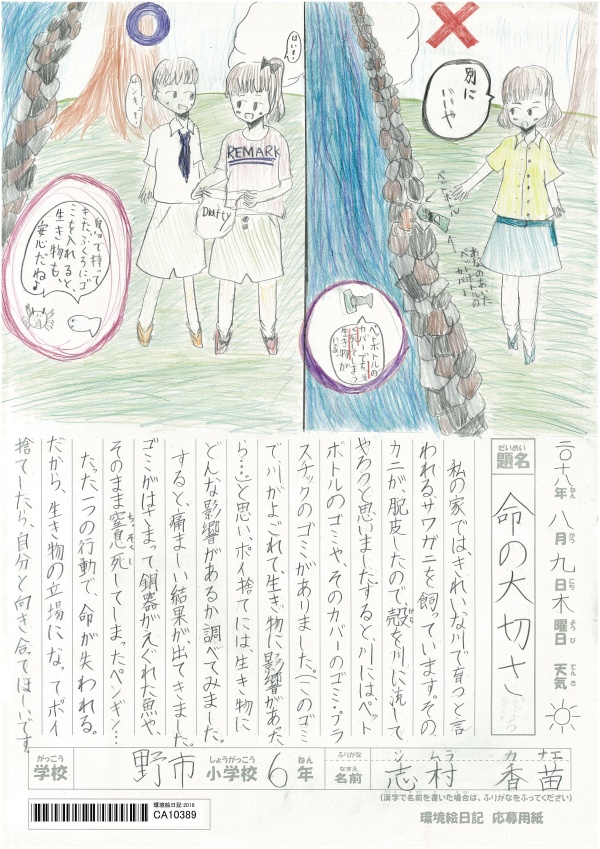 はいよ!
レンキュー!
REMARK
Drafty
自分で持って
きたふくろにゴ
ミを入れると、
生き物も、
安心だね♪
別に
いいや
ペットボトル
あなのあいた
ペットボトルの
カバー
ペットボトルの
カバーでちっ
そくしてしまう
生き物が
いる。
二〇一八年 八月 九日 木曜日 天気
ねん がつ にち ようび てんき
だいめい
題名 命の大切さ
私の家では、きれいな川で育つと言
われる、サワガニを飼っています。その
カニが脱皮したので、殻を川に流して
やろうと思いました。すると、川にはペット
ボトルのゴミや、そのカバーのゴミ・プラ
スチックのゴミがありました。(このゴミ
で川がよごれて、生き物に影響があった
ら…。)と思いポイ捨てには、生き物に
どんな影響があるか調べてみました。
すると、痛ましい結果が出てきました。
ゴミがはさまって、鋭器がえぐれた魚や、
そのまま窒息死してしまったペンギン…
ちっそくし
たった一つの行動で、命が失われる。
だから、生き物の立場になってポイ
捨てしたら、自分と向き合てほしいです。
がっこう しょうがっこう ねん ふりがな シ ムラ カ ナエ
学校 野市小学校 6年 なまえ 名前 志村 香苗
(漢字で名前を書いた場合は、ふりがなをふってください)
環境絵日記 2018
CA10389
環境絵日記 応募用紙